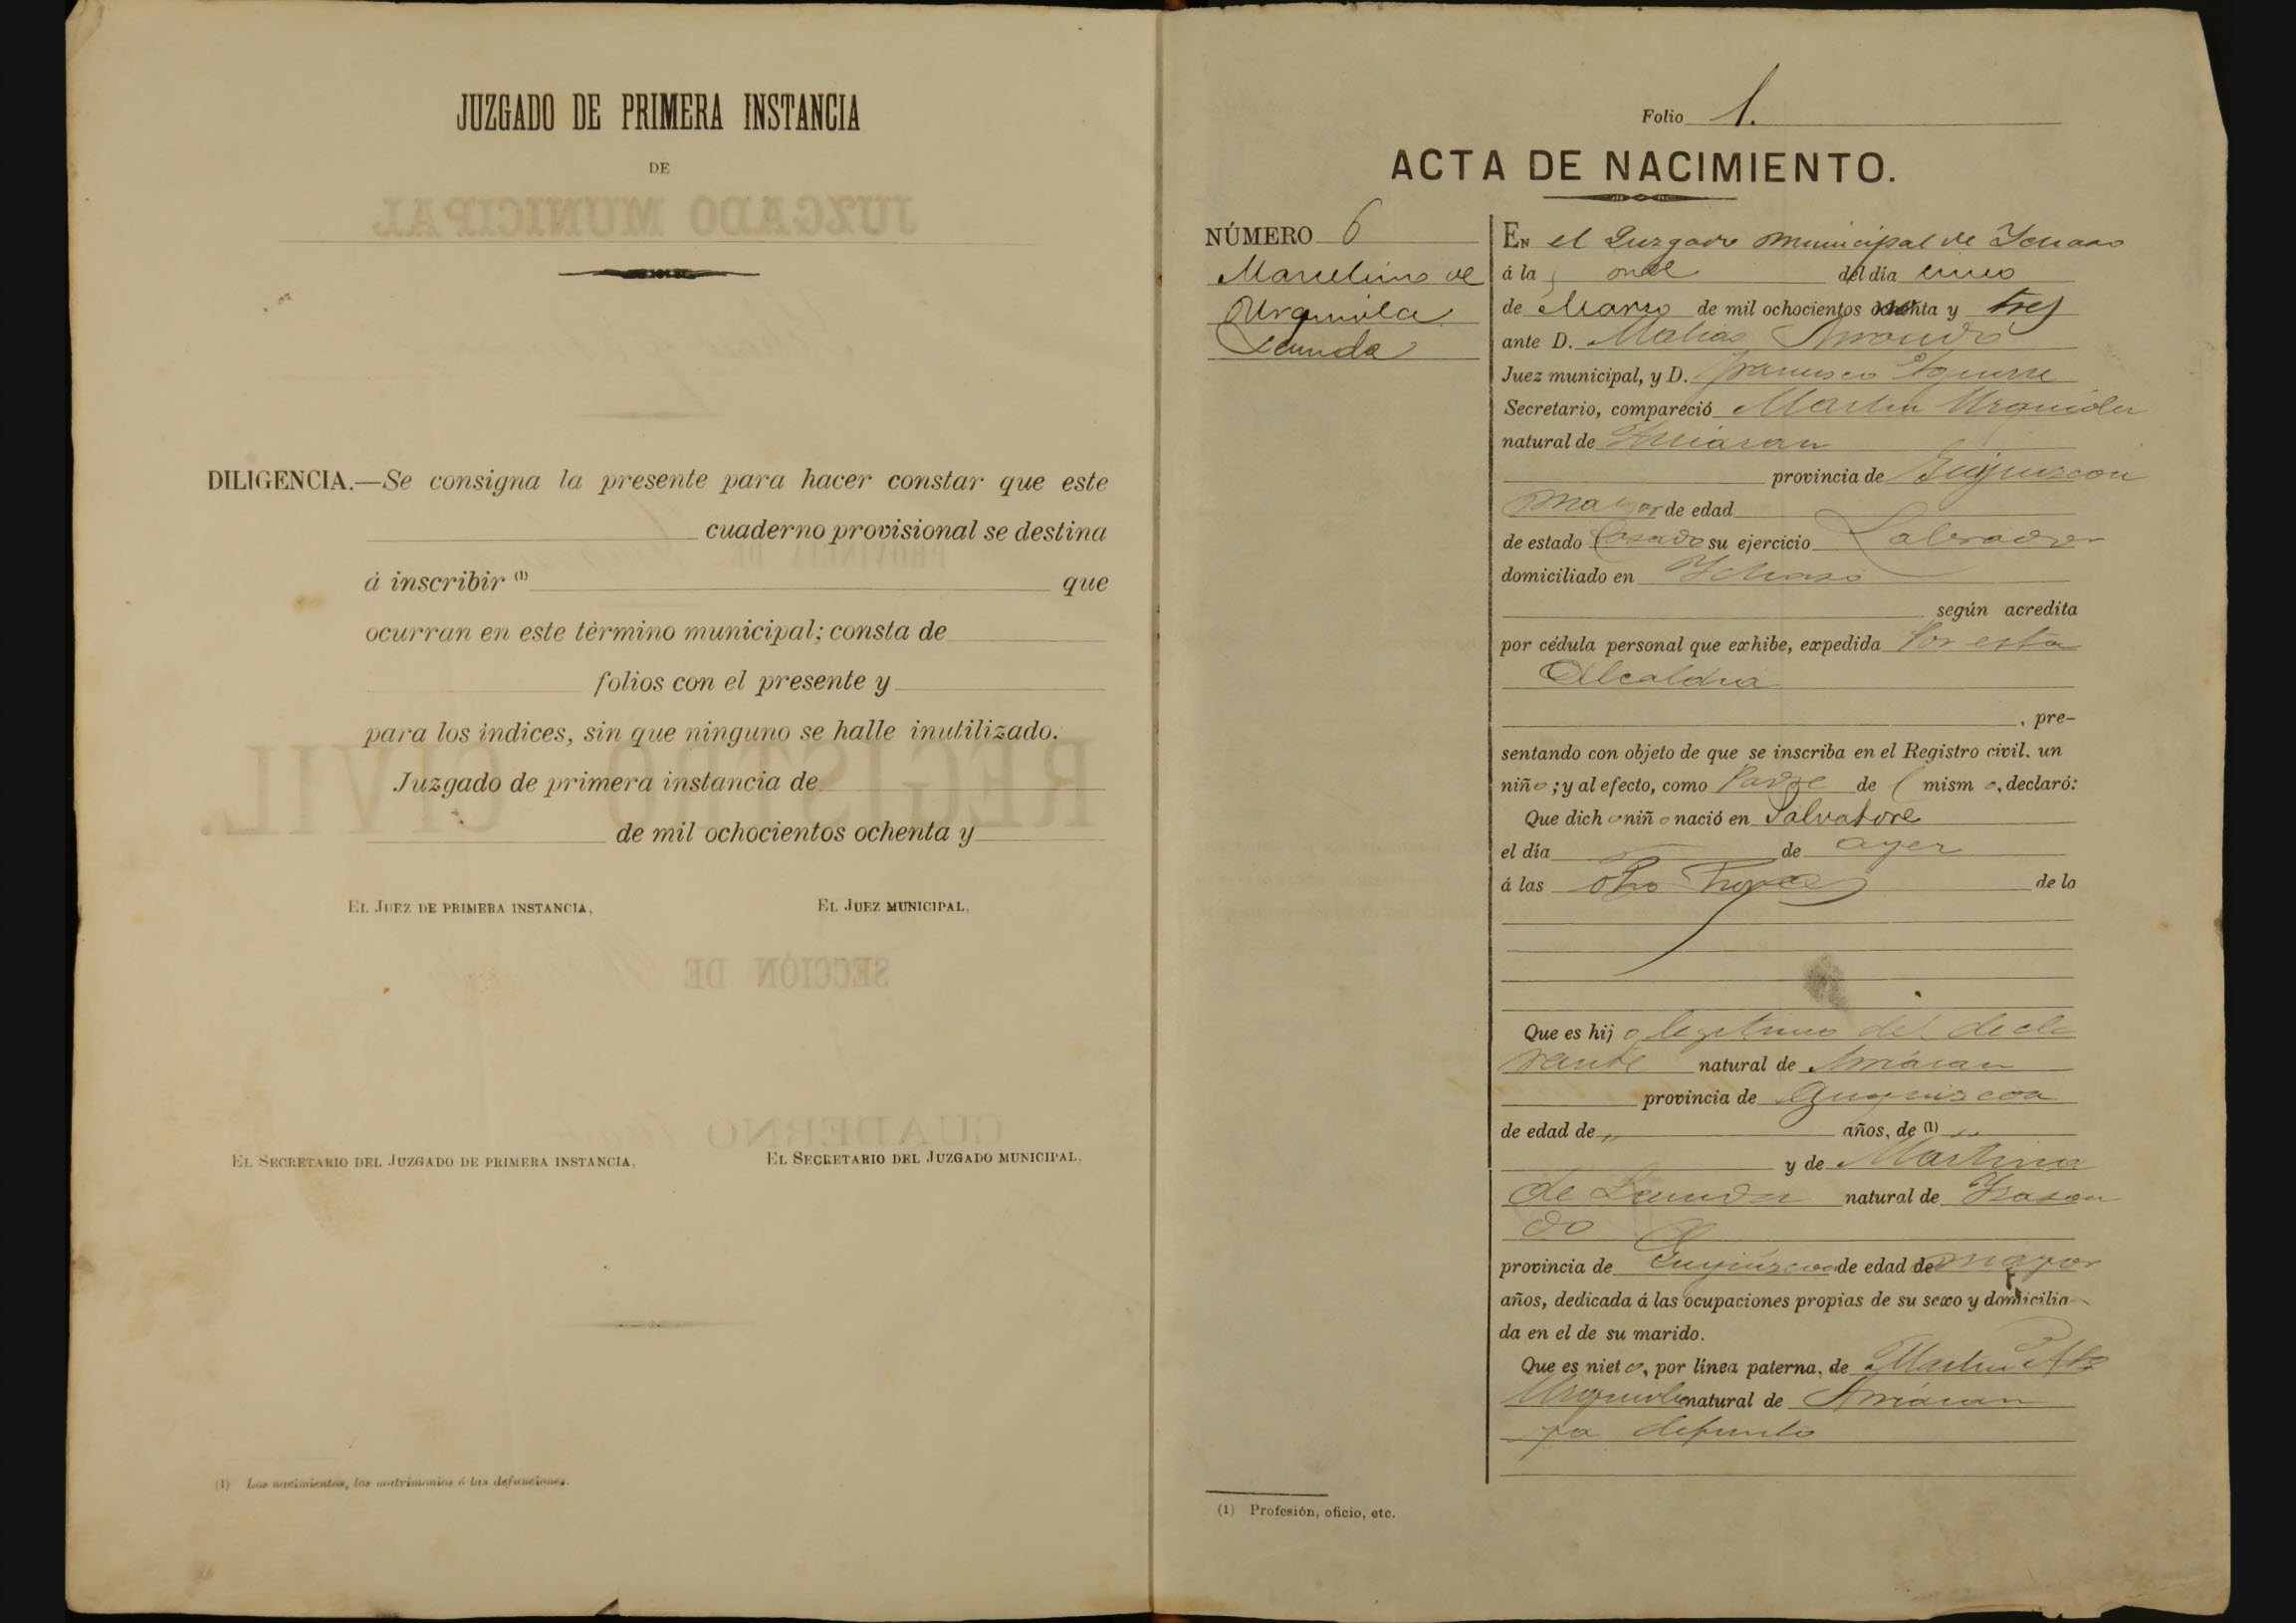 JUZGADO DE PRIMERA INSTANCIA
DE
DILIGENCIA.—Se consigna la presente para hacer constar que este
cuaderno provisional se destina
á inscribir (1) que
ocurran en este término municipal; consta de
folios con el presente y
para los índices, sin que ninguno se halle inutilizado.
Juzgado de primera instancia de
de mil ochocientos ochenta y
EL JUEZ DE PRIMERA INSTANCIA, EL JUEZ MUNICIPAL,
EL SECRETARIO DEL JUZGADO DE PRIMERA INSTANCIA, EL SECRETARIO DEL JUZGADO MUNICIPAL,
(1) Los nacimientos, los matrimonios ó las defunciones.
Folio 1.
ACTA DE NACIMIENTO.
NÚMERO 6
Marcelino de
Urquiola
Lecunda
EN el Juzgado Municipal de Ichaso
á la s once del día cinco
de Marzo de mil ochocientos ochenta y tres
ante D. Matias
Juez municipal, y D. Francisco Aguirre
Secretario, compareció Martin Urquiola
natural de Arriaran
provincia de Guipuzcoa
mayor de edad
de estado Casado su ejercicio Labrador
domiciliado en Ichaso
según acredita
por cédula personal que exhibe, expedida Por esta
Alcaldia
, pre-
sentando con objeto de que se inscriba en el Registro civil, un
niño; y al efecto, como Padre de l mism o, declaró:
Que dich o niñ o nació en Salvatore
el día de ayer
á las de la
Que es hij o legitimo del decla
rante natural de Arriaran
provincia de Guipuzcoa
de edad de " años, de (1) "
y de Martina
de Lecunda natural de Ysason
do
provincia de Guipuzcoa de edad de mayor
años, dedicada á las ocupaciones propias de su sexo y domicilia-
da en el de su marido.
Que es niet o, por línea paterna, de Martin
Urquiola natural de Arriaran
ya defunto
(1) Profesión, oficio, etc.